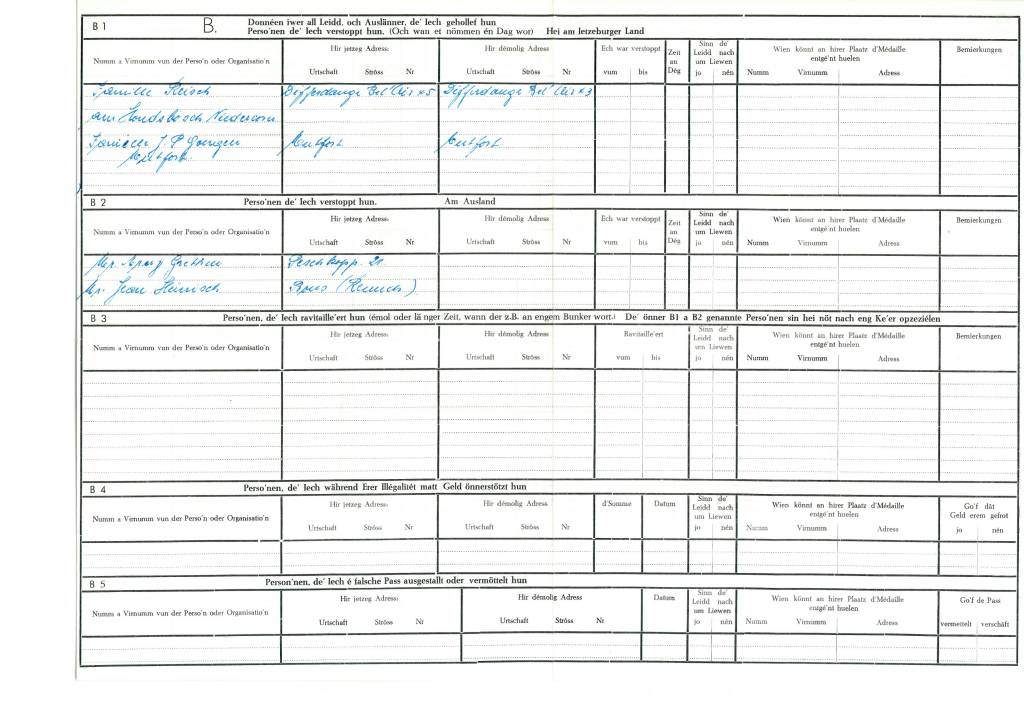 B 1 B. Donnéen iwer all Leidd, och Auslänner, de' Iech gehollef hun
Perso'nen de' Iech verstoppt hun. (Och wan et nömmen én Dag wor) Hei am letzeburger Land
Numm a Virnumm vun der Perso'n oder Organisatio'n Hir jetzeg Adress: Hir démolig Adress: Ech war verstoppt Zeit an Dég Sinn de' Leidd nach um Liewen Wien könnt an hirer Plaatz d'Médaille entgé'nt huelen Bemierkungen
Urtschaft Ströss Nr Urtschaft Ströss Nr vum bis jo nén Numm Virnumm Adress
Famille Differdange Bel Air Differdange Bel Air
am Niedercorn
J. P. Mutfort Mutfort
Mutfort.
B 2 Perso'nen de' Iech verstoppt hun. Am Ausland
Numm a Virnumm vun der Perso'n oder Organisatio'n Hir jetzeg Adress: Hir démolig Adress Ech war verstoppt Zeit an Dég Sinn de' Leidd nach um Liewen Wien könnt an hirer Plaatz d'Médaille entgé'nt huelen Bemierkungen
Urtschaft Ströss Nr Urtschaft Ströss Nr vum bis jo nén Numm Virnumm Adress
Mr. 21
Mr. Jean
B 3 Perso'nen, de' Iech ravitaille'ert hun (émol oder lä nger Zeit, wann der z.B. an engem Bunker wort.) De' önner B1 a B2 genannte Perso'nen sin hei nöt nach eng Ke'er opzeziélen
Numm a Virnumm vun der Perso'n oder Organisatio'n Hir jetzeg Adress: Hir démolig Adress Ravitaille'ert Sinn de' Leidd nach um Liewen Wien könnt an hirer Plaatz d'Médaille entgé'nt huelen Bemierkungen
Urtschaft Ströss Nr Urtschaft Ströss Nr vum bis jo nén Numm Virnumm Adress
B 4 Perso'nen, de' Iech während Erer Illégalitét matt Geld önnerstötzt hun
Numm a Virnumm vun der Perso'n oder Organisatio'n Hir jetzeg Adress: Hir démolig Adress d'Somme Datum Sinn de' Leidd nach um Liewen Wien könnt an hirer Plaatz d'Médaille entgé'nt huelen Go'f dât Geld erem gefrot
Urtschaft Ströss Nr Urtschaft Ströss Nr jo nén Numm Virnumm Adress jo nén
B 5 Person'nen, de' Iech é falsche Pass ausgestallt oder vermöttelt hun
Numm a Virnumm vun der Perso'n oder Organisatio'n Hir jetzeg Adress: Hir démolig Adress Datum Sinn de' Leidd nach um Liewen Wien könnt an hirer Plaatz d'Médaille entgé'nt huelen Go'f de Pass
Urtschaft Ströss Nr Urtschaft Ströss Nr jo nén Numm Virnumm Adress vermettelt verschäft